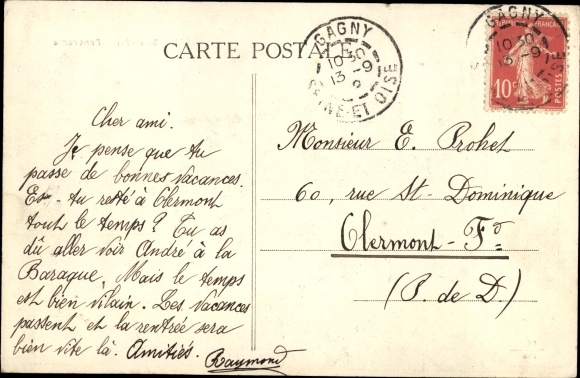 CARTE POSTALE
GAGNY
10 30
13 -9
SEINE-ET-OISE
GAGNY
10 30
13 -9
10c
POSTES
Cher ami.
Je pense que tu
passe de bonnes vacances.
Es-tu resté à Clermont
tout le temps? Tu as
dû aller voir André à la
Baraque. Mais le temps
est bien vilain. Les vacances
passent et la rentrée sera
bien vite là. Amitiés.
Raymond
Monsieur E. Prohet
60, rue St-Dominique
Clermont-Fd
(P. de D.)